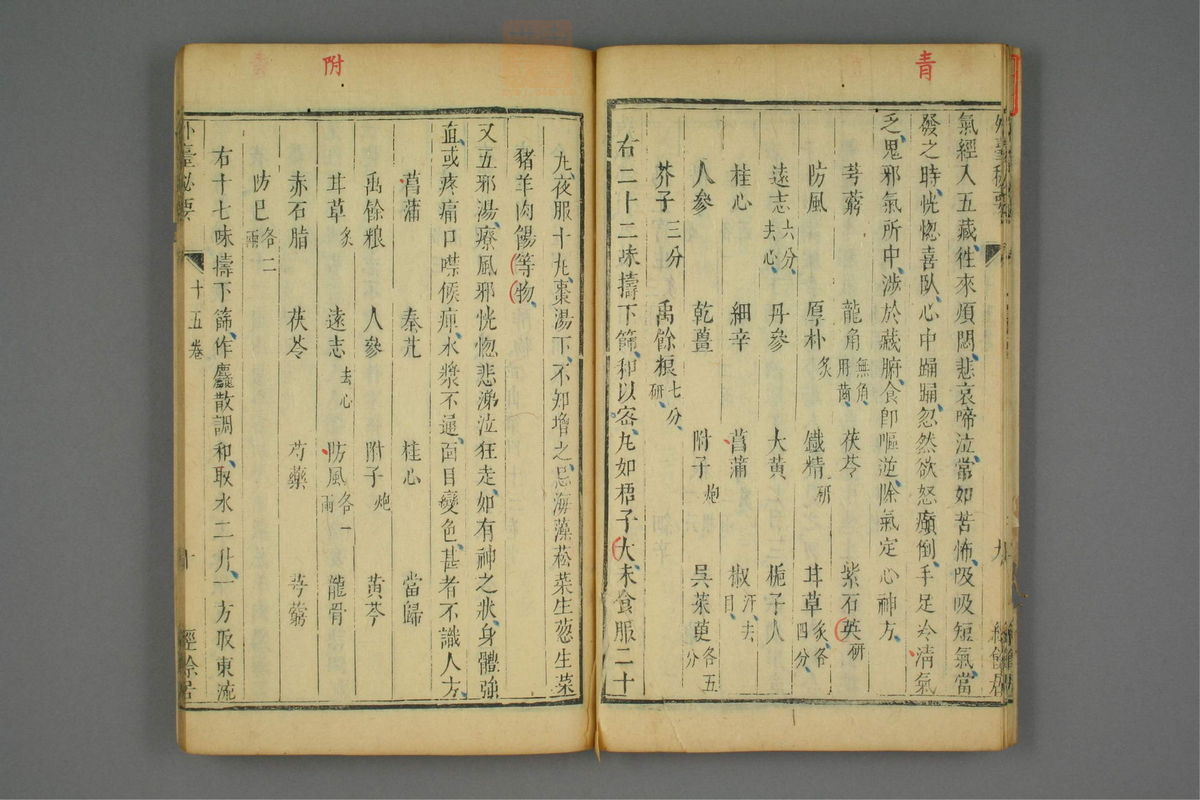 青
氣經入五藏徃來煩悶悲哀啼泣常如苦怖吸吸短氣當
發之時恍惚喜臥心中踊踊忽然欲怒癲倒手足冷清氣
乏鬼邪氣所中涉於藏腑食卽嘔逆除氣定心神方
芎藭 龍角無角用齒 茯苓 紫石英研
防風 厚朴炙 鐵精研 甘草炙各四分
遠志六分去心 丹參 大黃 梔子人
桂心 細辛 菖蒲 椒汗去目
人參 乾薑 附子炮 吳茱萸各五分
芥子三分 禹餘粮七分研
右二十二味擣下篩和以密丸如梧子大未食服二十
附
丸夜服十丸棗湯下不知增之忌海藻菘菜生葱生菜
豬羊肉餳等物
又五邪湯療風邪恍惚悲涕泣狂走如有神之狀身體強
直或疼痛口噤候痺水漿不通面目變色甚者不識人方
菖蒲 秦艽 桂心 當歸
禹餘粮 人參 附子炮 黃芩
甘草炙 遠志去心 防風各一兩 龍骨
赤石脂 茯苓 芍藥 芎藭
防巳各二兩
右十七味擣下篩作麤散調和取水二升一方取東流
外臺秘要 十五卷 經餘居